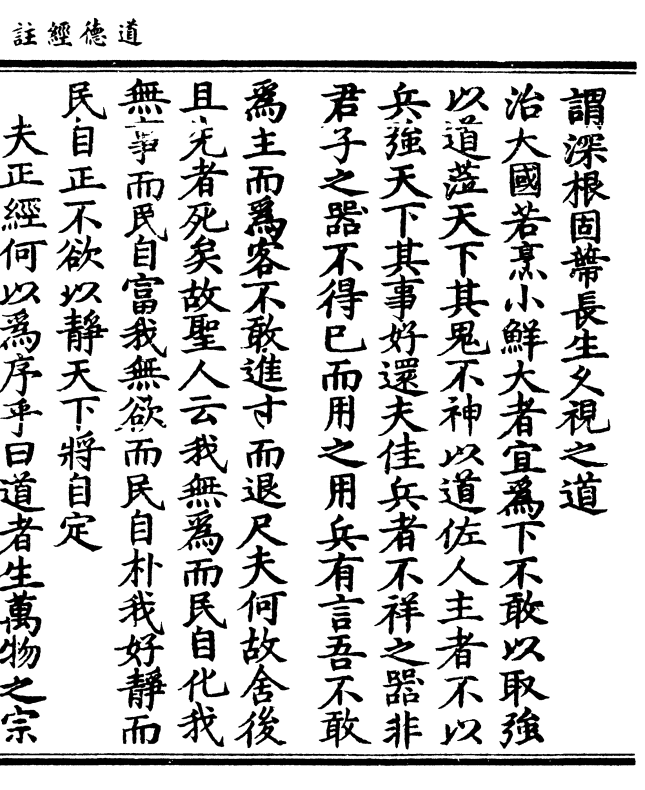 道德經註
謂深根固蔕長生久視之道
治大國若烹小鮮大者宜為下不敢以取強
以道蒞天下其鬼不神以道佐人主者不以
兵強天下其事好還夫佳兵者不祥之器非
君子之器不得已而用之用兵有言吾不敢
為主而為客不敢進寸而退尺夫何故舍後
且先者死矣故聖人云我無為而民自化我
無事而民自富我無欲而民自朴我好靜而
民自正不欲以靜天下將自定
夫正經何以為序乎曰道者生萬物之宗